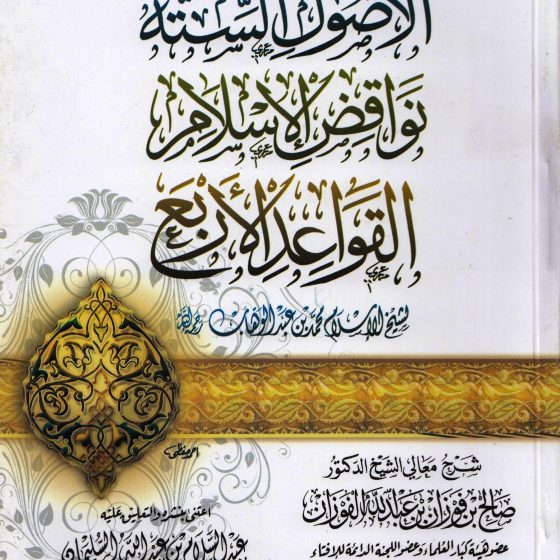 الأصول الستة
نواقض الإسلام
القواعد الأربع
لشيخ الإسلام محمد بن عبد الوهاب رحمه الله
شرح معالي الشيخ الدكتور
صالح بن فوزان بن عبد الله الفوزان
عضو هيئة كبار العلماء وعضو اللجنة الدائمة للإفتاء
اعتنى بنشره والتعليق عليه
عبد السلام بن عبد الله السليمان